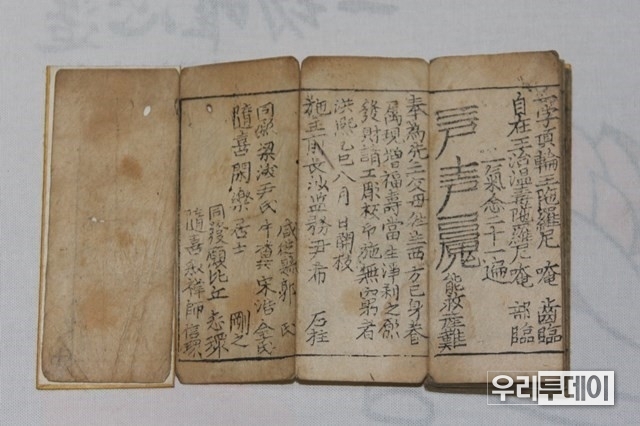 一字頂輪王陁羅尼 唵 齒臨
自在王治溫毒陁羅尼 唵 部臨
一氣念二十一遍
能救產難
奉為先亡父母徃生西方己身眷
屬現增福壽當生淨利之願
發財請工彫板印施無窮者
洪熙乙巳八月 日開板
施主前長沙監務尹希 石柱
郭 氏
同願梁浚尹氏 宋浩金氏
隨喜閑樂居士 剛之
同發願比丘 志
隨喜 禪師信
우리투데이